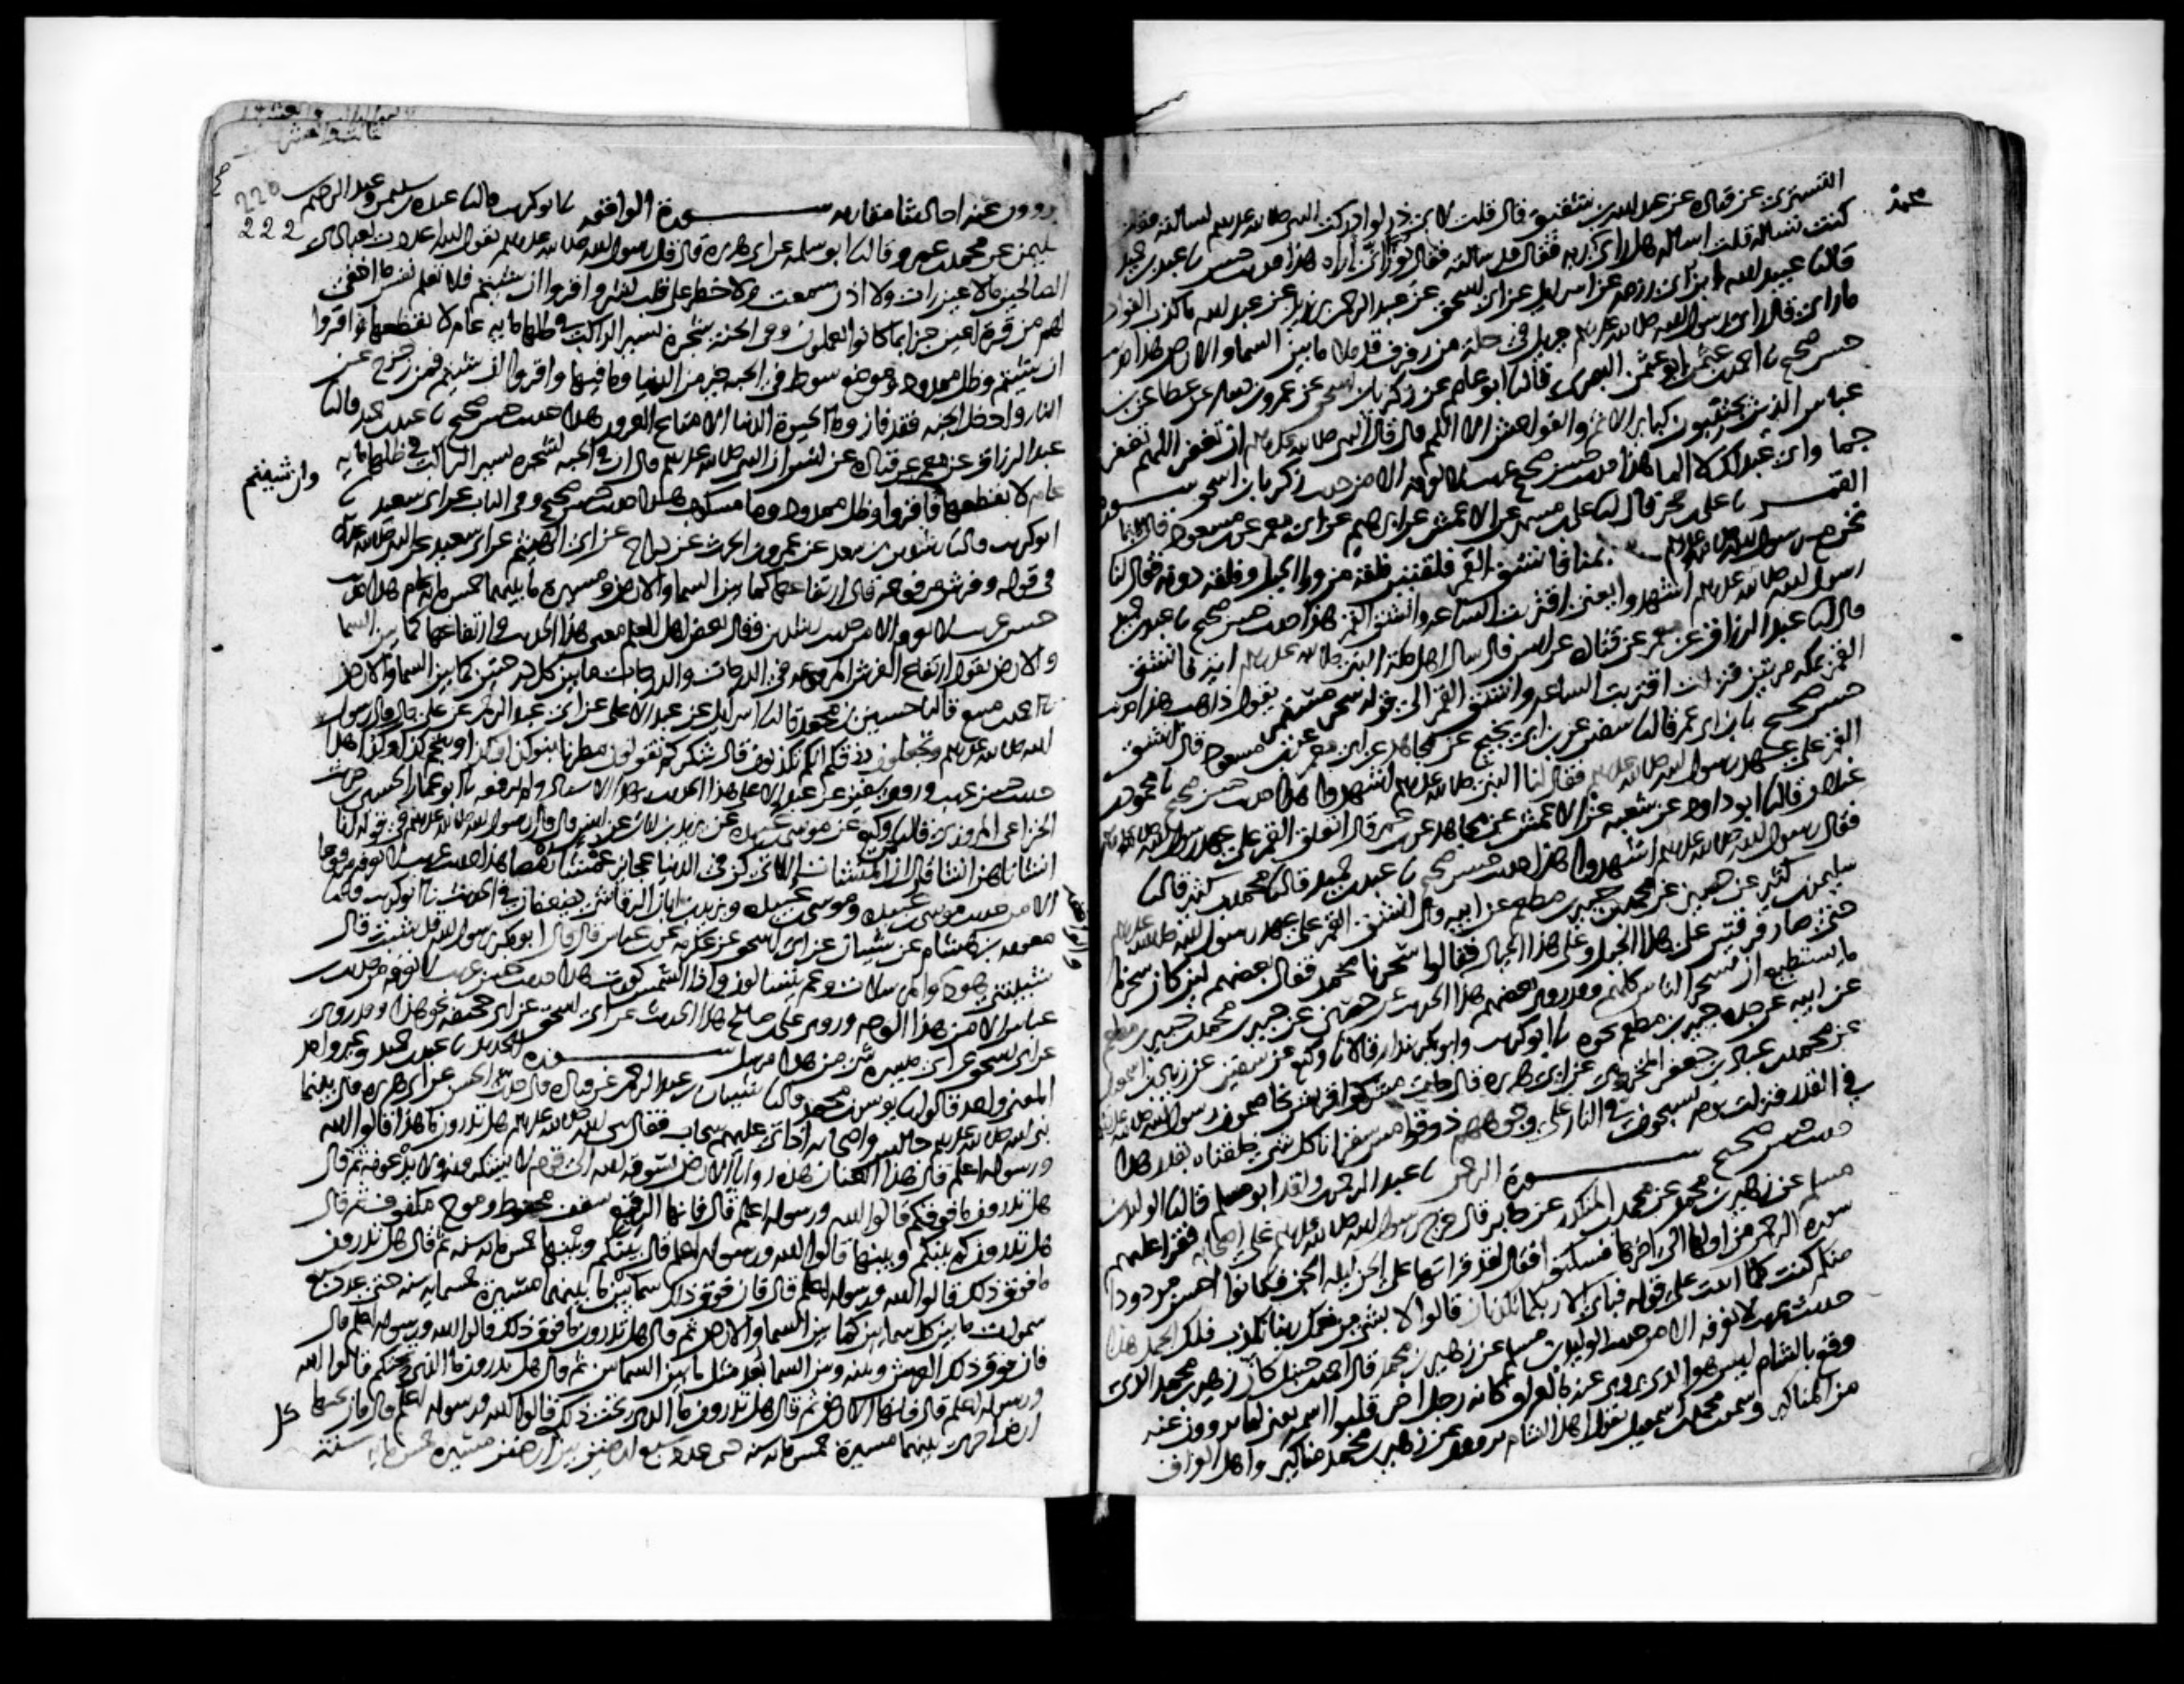 محمد
التستري عن قتادة عن عبد الله بن شقيق قال قلت لابي ذر لو ادركت النبي صلى الله عليه وسلم لسالته فقال
كنت تساله قلت اساله هل راى ربه فقال قد سالته فقال نورا انى اراه هذا حديث حسن نا عبد بن حميد
قال نا عبيد الله وابن ابي رزمة عن اسرايل عن ابي اسحق عن عبد الرحمن بن يزيد عن عبد الله ما كذب الفواد
ما راى قال راى رسول الله صلى الله عليه وسلم جبريل في حلة من رفرف قد ملا ما بين السما والارض هذا حديث
حسن صحيح نا احمد بن عثمن ابو عثمن البصري قال نا ابو عاصم عن زكريا بن اسحق عن عمرو بن دينار عن عطا عن بن
عباس الذين يجتنبون كباير الاثم والفواحش الا اللمم قال قال النبي صلى الله عليه وسلم ان تغفر اللهم تغفر
جما واي عبد لك لا الما هذا حديث حسن صحيح غريب لا نعرفه الا من حديث زكريا بن اسحق سورة
القمر نا علي بن حجر قال نا علي بن مسهر عن الاعمش عن ابرهيم عن ابي معمر عن بن مسعود قال بينما
نحن مع رسول الله صلى الله عليه وسلم بمنا فانشق القمر فلقتين فلقة من ورا الجبل وفلقة دونه فقال لنا
رسول الله صلى الله عليه وسلم اشهدوا يعني اقتربت الساعة وانشق القمر هذا حديث حسن صحيح نا عبد بن حميد
قال نا عبد الرزاق عن معمر عن قتادة عن انس قال سال اهل مكة النبي صلى الله عليه وسلم اية فانشق
القمر بمكة مرتين فنزلت اقتربت الساعة وانشق القمر الى قوله سحر مستمر يقول ذاهب هذا حديث
حسن صحيح نا بن ابي عمر قال نا سفين عن بن ابي نجيح عن مجاهد عن ابي معمر عن بن مسعود قال انشق
القمر على عهد رسول الله صلى الله عليه وسلم فقال لنا النبي صلى الله عليه وسلم اشهدوا هذا حديث حسن صحيح نا محمود بن
غيلان قال نا ابو داود عن شعبة عن الاعمش عن مجاهد عن بن عمر قال انفلق القمر على عهد رسول الله صلى الله عليه وسلم
فقال رسول الله صلى الله عليه وسلم اشهدوا هذا حديث حسن صحيح نا عبد بن حميد قال نا محمد بن كثير قال نا
سليمن بن كثير عن حصين عن محمد بن جبير بن مطعم عن ابيه قال انشق القمر على عهد رسول الله صلى الله عليه وسلم
حتى صار فرقتين على هذا الجبل وعلى هذا الجبال فقالوا سحرنا محمد فقال بعضهم لين كان سحرنا
ما يستطيع ان يسحر الناس كلهم وقد روى بعضهم هذا الحديث عن حصين عن جبير بن محمد بن جبير بن مطعم
عن ابيه عن جده جبير بن مطعم نحوه نا ابو كريب وابو بكر بندار قالا نا وكيع عن سفين عن زياد بن اسمعيل
عن محمد بن عباد بن جعفر المخزومي عن ابي هريرة قال جاءت مشركوا قريش يخاصمون رسول الله صلى الله عليه وسلم
في القدر فنزلت يوم يسحبون في النار على وجوههم ذوقوا مس سقر انا كل شي خلقناه بقدر هذا
حديث حسن صحيح سورة الرحمن نا عبد الرحمن بن واقد ابو مسلم قال نا الوليد بن
مسلم عن زهير بن محمد عن محمد بن المنكدر عن جابر قال خرج رسول الله صلى الله عليه وسلم على اصحابه فقرا عليهم
سورة الرحمن من اولها الى اخرها فسكتوا فقال لقد قراتها على الجن ليلة الجن فكانوا احسن مردودا
منكم كنت كلما اتيت على قوله فباي الا ربكما تكذبان قالوا لا بشي من نعمك ربنا نكذب فلك الحمد هذا
حديث غريب لا نعرفه الا من حديث الوليد بن مسلم عن زهير بن محمد قال احمد بن حنبل كان زهير بن محمد الذي
وقع بالشام ليس هو الذي يروى عنه بالعراق كانه رجل اخر قلبوا اسمه يعني لما يروون عنه
من المناكير وسمعت محمد بن اسمعيل يقول اهل الشام يروون عن زهير بن محمد مناكير واهل العراق
220
222
يروون عنه احاديث مقاربة سورة الواقعة نا ابو كريب قال نا عبدة بن سليمن وعبد الرحيم بن
سليمن عن محمد بن عمرو قال نا ابو سلمة عن ابي هريرة قال قال رسول الله صلى الله عليه وسلم يقول الله اعددت لعبادي
الصالحين ما لا عين رات ولا اذن سمعت ولا خطر على قلب بشر واقروا ان شيتم فلا تعلم نفس ما اخفي
لهم من قرة اعين جزا بما كانوا يعملون وفي الجنة شجرة يسير الراكب في ظلها ماية عام لا يقطعها واقروا
ان شيتم وظل ممدود وموضع سوط في الجنة خير من الدنيا وما فيها واقروا ان شيتم فمن زحزح عن
النار وادخل الجنة فقد فاز وما الحيوة الدنيا الا متاع الغرور هذا حديث حسن صحيح نا عبد بن حميد قال نا
عبد الرزاق عن معمر عن قتادة عن انس ان النبي صلى الله عليه وسلم قال ان في الجنة لشجرة يسير الراكب في ظلها ماية
وان شيتم
عام لا يقطعها فاقروا وظل ممدود وما مسكوب هذا حديث حسن صحيح وفي الباب عن ابي سعيد نا
ابو كريب قال نا رشدين بن سعد عن عمرو بن الحرث عن دراج عن ابي الهيثم عن ابي سعيد عن النبي صلى الله عليه وسلم
في قوله وفرش مرفوعة قال ارتفاعها كما بين السما والارض ومسيرة ما بينهما خمس ماية عام هذا حديث
حسن غريب لا نعرفه الا من حديث رشدين وقال بعض اهل العلم معنى هذا الحديث في ارتفاعها كما بين السما
والارض يقول ارتفاع الفرش المرفوعة في الدرجات والدرجات ما بين كل درجتين كما بين السما والارض
نا احمد بن منيع قال نا حسين بن محمد قال نا اسرايل عن عبد الاعلى عن ابي عبد الرحمن عن علي قال قال رسول
الله صلى الله عليه وسلم وتجعلون رزقكم انكم تكذبون قال شكركم تقولون مطرنا بنو كذا وكذا وبنجم كذا وكذا هذا
حديث حسن غريب وروى سفين عن عبد الاعلى هذا الحديث بهذا الاسناد ولم يرفعه نا ابو عمار الحسين بن حريث
الخزاعي المروزي قال نا وكيع عن موسى بن عبيدة عن يزيد بن ابان عن انس قال قال رسول الله صلى الله عليه وسلم في قوله انا
انشاناهن انشا قال ان المنشات اللاتي كن في الدنيا عجايز عمشا رمصا هذا حديث غريب لا نعرفه مرفوعا
الا من حديث موسى بن عبيدة وموسى بن عبيدة ويزيد بن ابان الرقاشي يضعفان في الحديث نا ابو كريب قال نا
معوية بن هشام عن شيبان عن ابي اسحق عن عكرمة عن بن عباس قال قال ابو بكر يا رسول الله قد شبت قال
شيبتني هود والمرسلات وعم يتسالون واذا الشمس كورت هذا حديث حسن غريب لا نعرفه من حديث بن
والواقعة
عباس الا من هذا الوجه وروى علي بن صالح هذا الحديث عن ابي اسحق عن ابي جحيفة نحو هذا وقد روى
عن ابي اسحق عن ابي ميسرة شي من هذا مرسل سورة الحديد نا عبد بن حميد وغير واحد
المعنى واحد قالوا نا يونس بن محمد قال نا شيبان بن عبد الرحمن عن قتادة قال حدث الحسن عن ابي هريرة قال بينما
نبي الله صلى الله عليه وسلم جالس واصحابه اذ اتى عليهم سحاب فقال نبي الله صلى الله عليه وسلم هل تدرون ما هذا قالوا الله
ورسوله اعلم قال هذا العنان هذه روايا الارض يسوقه الله الى قوم لا يشكرونه ولا يدعونه ثم قال
هل تدرون ما فوقكم قالوا الله ورسوله اعلم قال فانها الرقيع سقف محفوظ وموج مكفوف ثم قال
هل تدرون كم بينكم وبينها قالوا الله ورسوله اعلم قال بينكم وبينها خمس ماية سنة ثم قال هل تدرون
ما فوق ذلك قالوا الله ورسوله اعلم قال فان فوق ذلك سماين ما بينهما مسيرة خمسماية سنة حتى عد سبع
سموات ما بين كل سماين كما بين السما والارض ثم قال هل تدرون ما فوق ذلك قالوا الله ورسوله اعلم قال
فان فوق ذلك العرش وبينه وبين السما بعد مثل ما بين السماين ثم قال هل تدرون ما الذي تحتكم قالوا الله
ورسوله اعلم قال فانها الارض ثم قال هل تدرون ما الذي تحت ذلك قالوا الله ورسوله اعلم قال فان تحتها
ارضا اخرى بينهما مسيرة خمس ماية سنة حتى عد سبع ارضين بين ارضين مسيرة خمس ماية سنة
كل